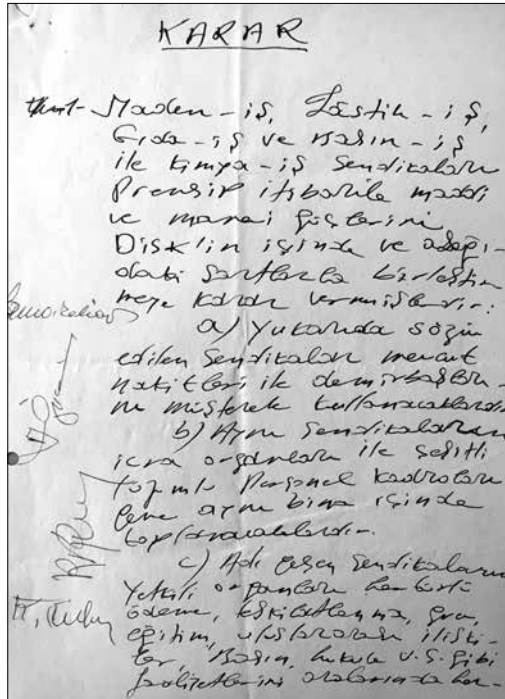 KARAR
Maden-iş, Lastik-iş,
Gıda-iş ve Basın-iş
ile Kimya-iş Sendikaları
Prensip itibarile maddi
ve manevi güçlerini
Disk'in içinde ve aşağı-
daki şartlarla birleştir
meye karar vermişlerdir:
a) Yukarıda sözü
edilen Sendikalar mevcut
nakitleri ile demirbaşları-
nı müşterek kullanacaklardır
b) Aynı Sendikaların
icra organları ile çeşitli
Personel kadroları
aynı bina içinde
toplanacaklardır.
c) Adı geçen Sendikaların
Yetkili organları her türlü
ödeme, teşkilatlanma, grev,
eğitim, uluslararası ilişki-
ler, Basın, hukuk v.s. gibi
faaliyetlerini aralarında